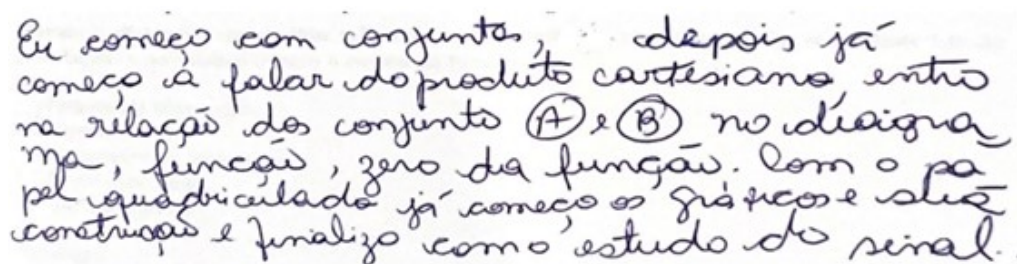 Eu começo com conjuntos, depois já
começo a falar do produto cartesiano, entro
na relação dos conjunto A e B no diagra
ma, função, zero da função. Com o pa
pel quadriculado já começo os gráficos e sua
construção e finalizo com o estudo do sinal.